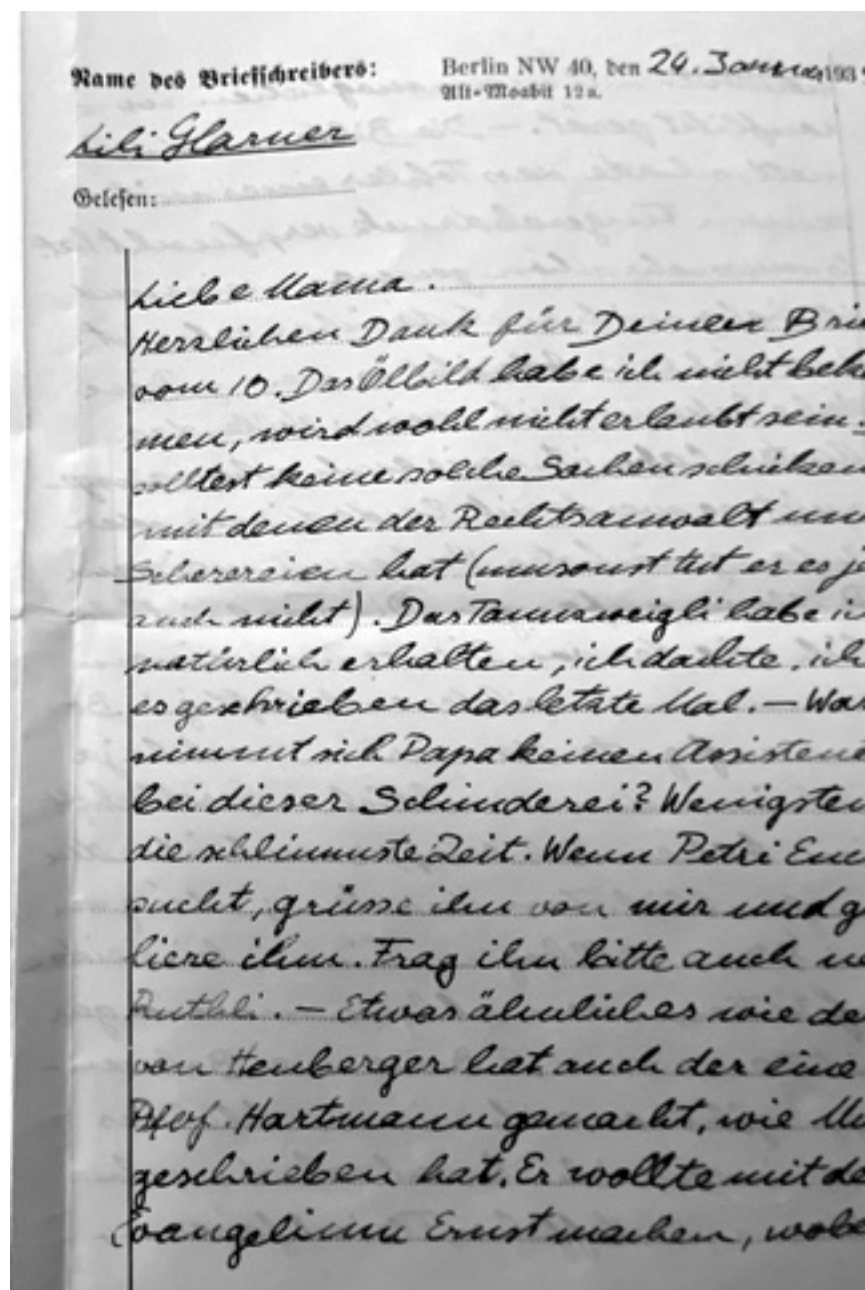 Name des Briefschreibers:
Berlin NW 40, den 24. Januar 193
Alt-Moabit 12a.
Lili Glarner
Gelesen:
Liebe Mama.
Herzlichen Dank für Deinen Brie
vom 10. Das Ölbild habe ich nicht beko
men, wird wohl nicht erlaubt sein.
solltest keine solche Sachen schicken
mit denen der Rechtsanwalt nur
Scherereien hat (umsonst tut er es je
auch nicht). Das Tannzweigli habe i
natürlich erhalten, ich dachte, ich
es geschrieben das letzte Mal. – War
nimmt sich Papa keinen Assistent
bei dieser Schinderei? Wenigsten
die schlimmste Zeit. Wenn Petri Euc
sucht, grüsse ihn von mir und g
liere ihm. Frag ihn bitte auch n
Ruthli. – Etwas ähnliches wie de
von Heuberger hat auch der eine
Prof. Hartmann gemacht, wie M
geschrieben hat. Er wollte mit de
Evangelium Ernst machen, wobe